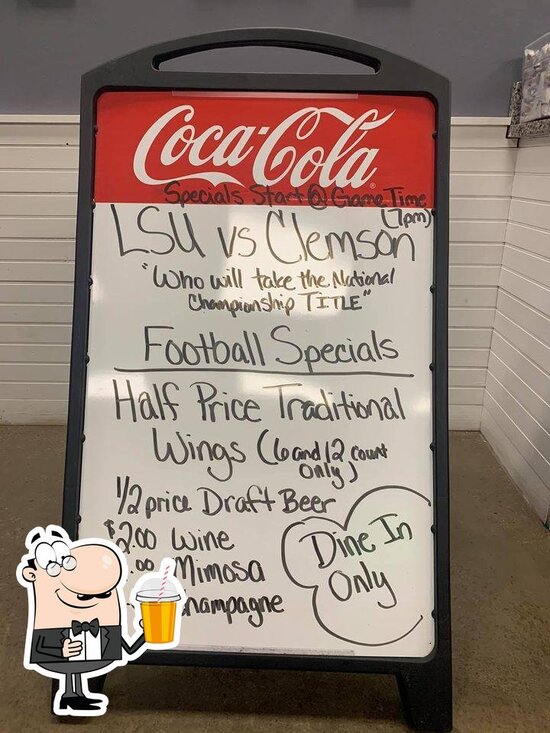 Coca-Cola
Specials Start @ Game Time
(7pm)
LSU vs Clemson
"Who will take the National
Championship TITLE"
Football Specials
Half Price Traditional
Wings (6 and 12 count
only)
1/2 price Draft Beer
$2.00 Wine
.00 Mimosa
Dine In
Only